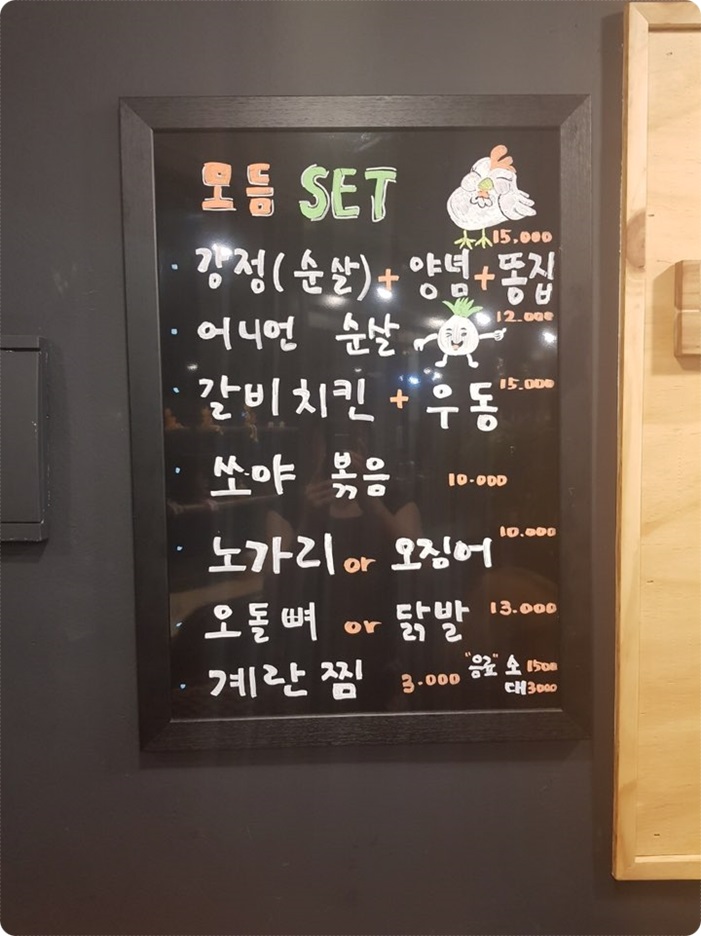 모듬 SET
15.000
· 강정(순살)+ 양념+똥집
12.000
· 어니언 순살
· 갈비치킨 + 우동 15.000
· 쏘야 볶음 10.000
10.000
· 노가리 or 오징어
오돌뼈 or 닭발 13.000
· 계란찜 3.000 "음료" 소 1500
대 3000